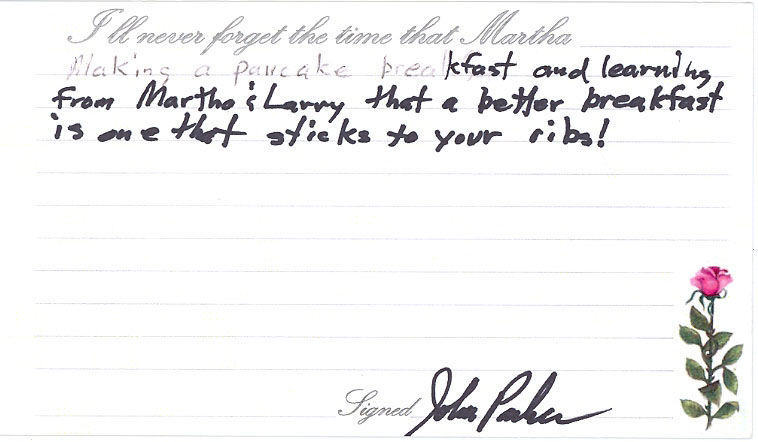 I'll never forget the time that Martha
Making a pancake breakfast and learning
from Martha & Larry that a better breakfast
is one that sticks to your ribs!
Signed John Parker